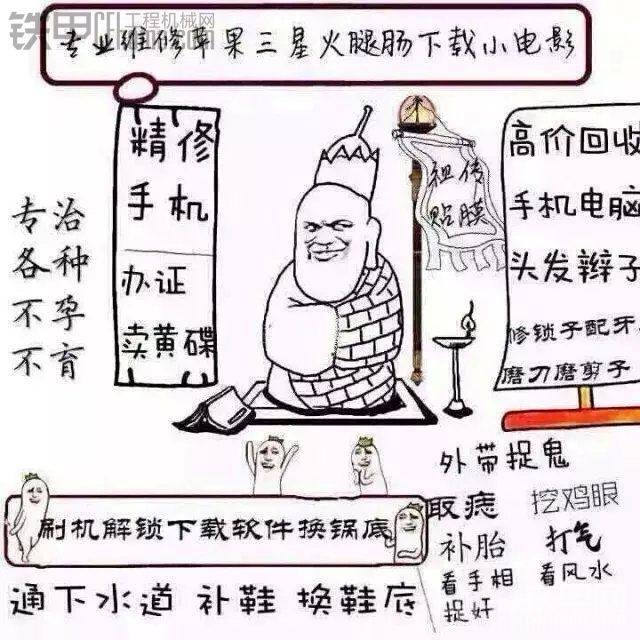 铁甲 工程机械网
专业维修苹果三星火腿肠下载小电影
精修
手机
办证
卖黄碟
专治
各种
不孕
不育
祖传
贴膜
高价回收
手机电脑
头发辫子
修锁子配牙
磨刀磨剪子
外带捉鬼
取痣 挖鸡眼
补胎 打气
看手相 看风水
捉奸
刷机解锁下载软件换锅底
通下水道 补鞋 换鞋底